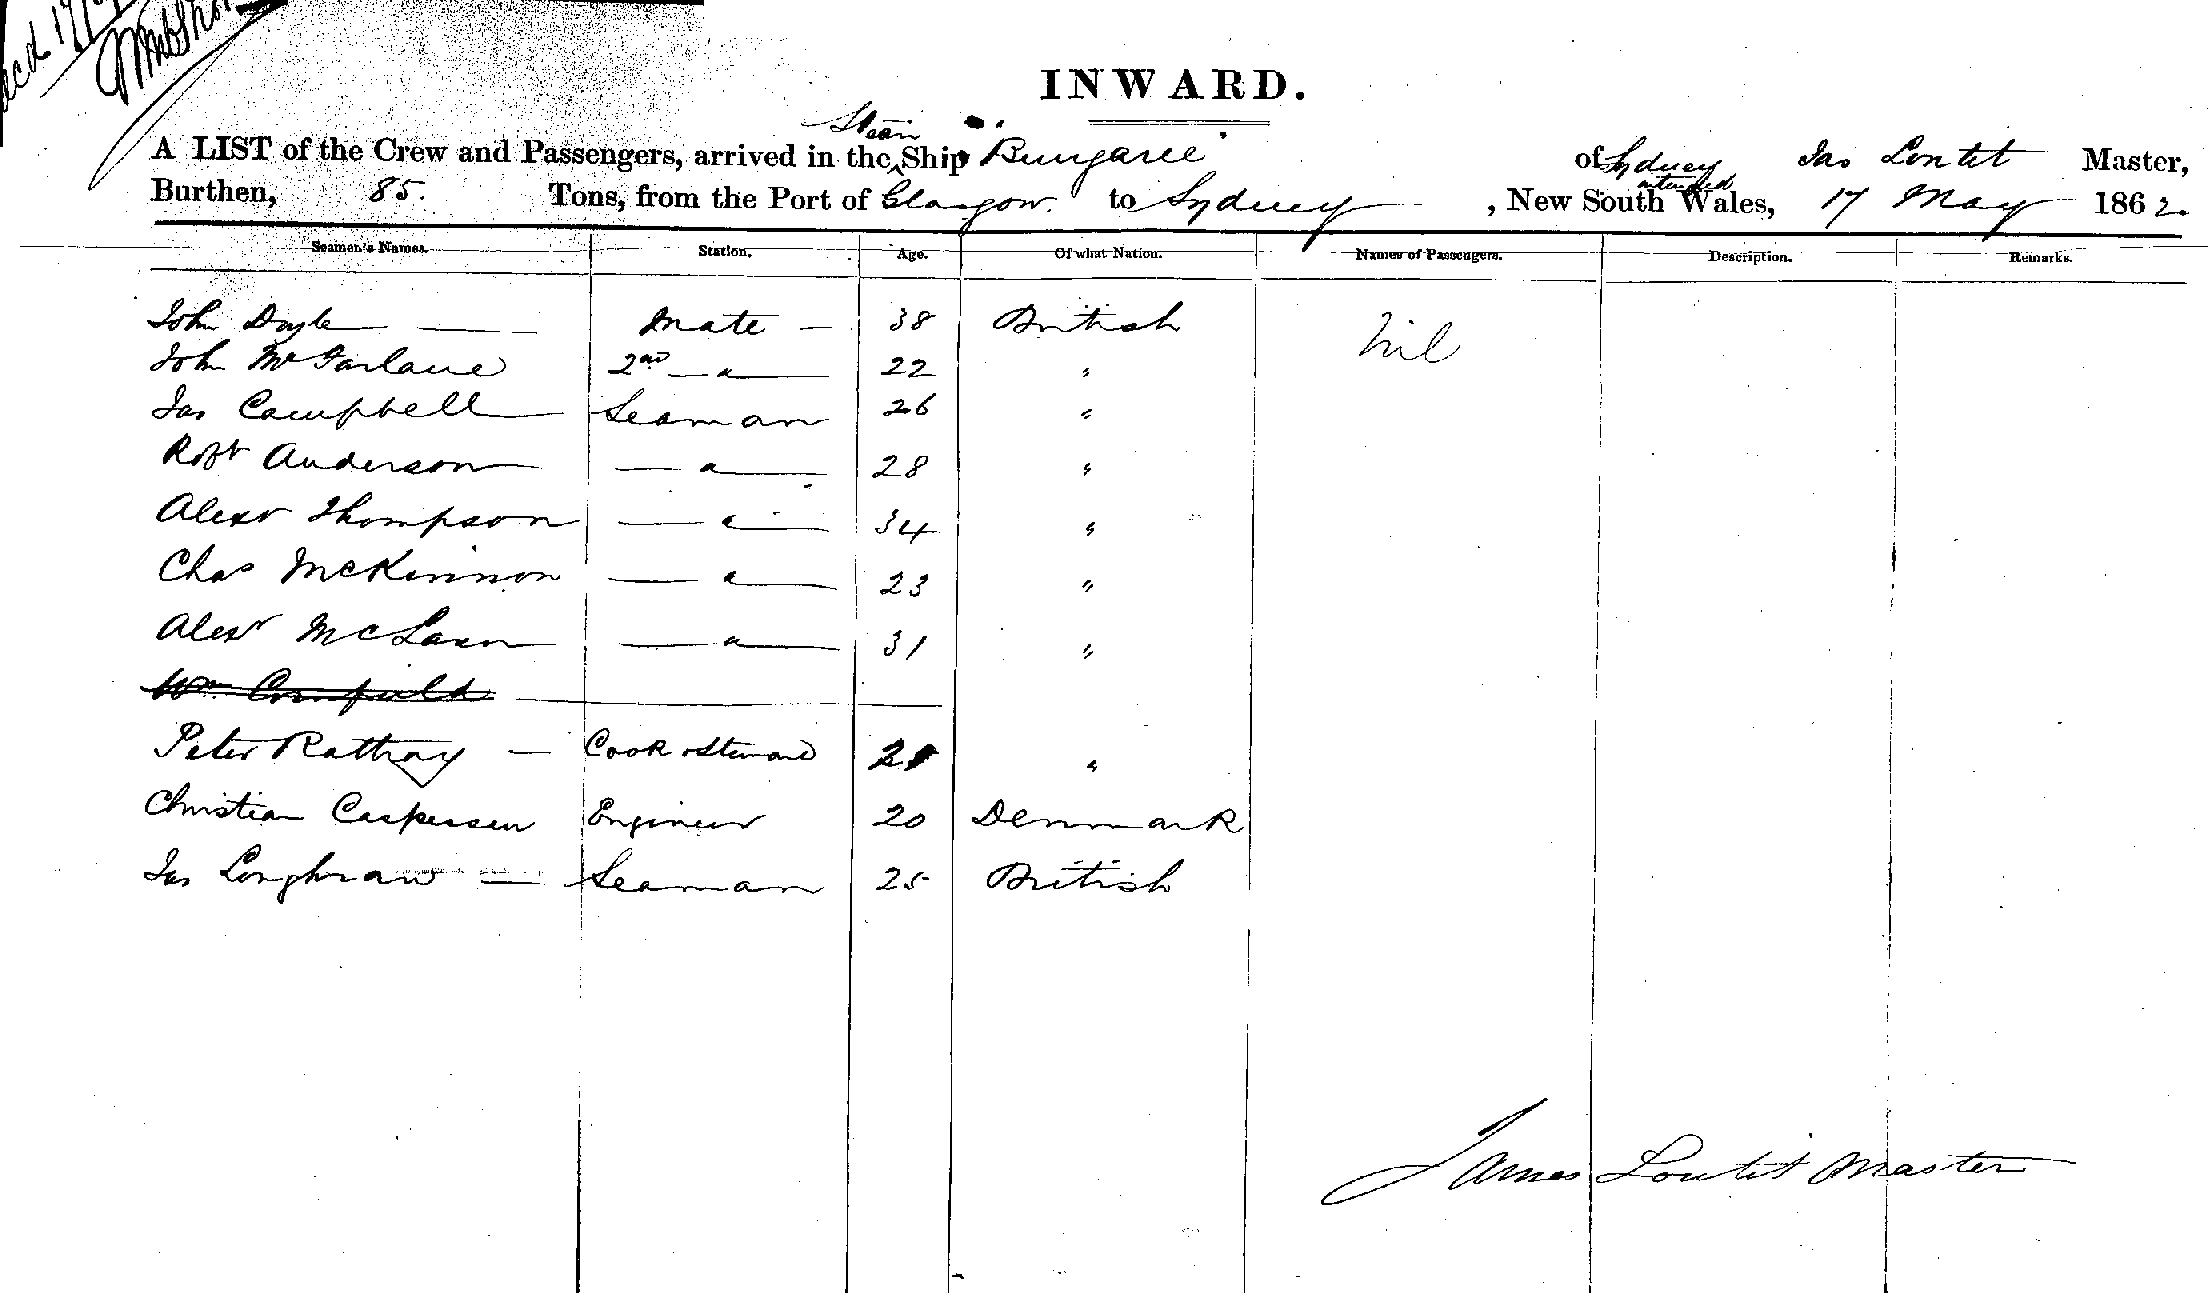 INWARD.
A LIST of the Crew and Passengers, arrived in the Steam Ship Bungaree of Sydney Jas Loutit Master,
Burthen, 85. Tons, from the Port of Glasgow. to Sydney, New South Wales, 17 May 1862.
Seamen's Names. Station. Age. Of what Nation. Names of Passengers. Description. Remarks.
John Doyle Mate 38 British Nil
John McFarlane 2nd " 22 "
Jas Campbell Seaman 26 "
Robt Anderson " 28 "
Alexr Thompson " 34 "
Chas McKinnon " 23 "
Alexr McLean " 31 "
Peter Rattray Cook & Steward "
Christian Caspersen Engineer 20 Denmark
Jas Loughraw Seaman 25 British
James Loutit Master